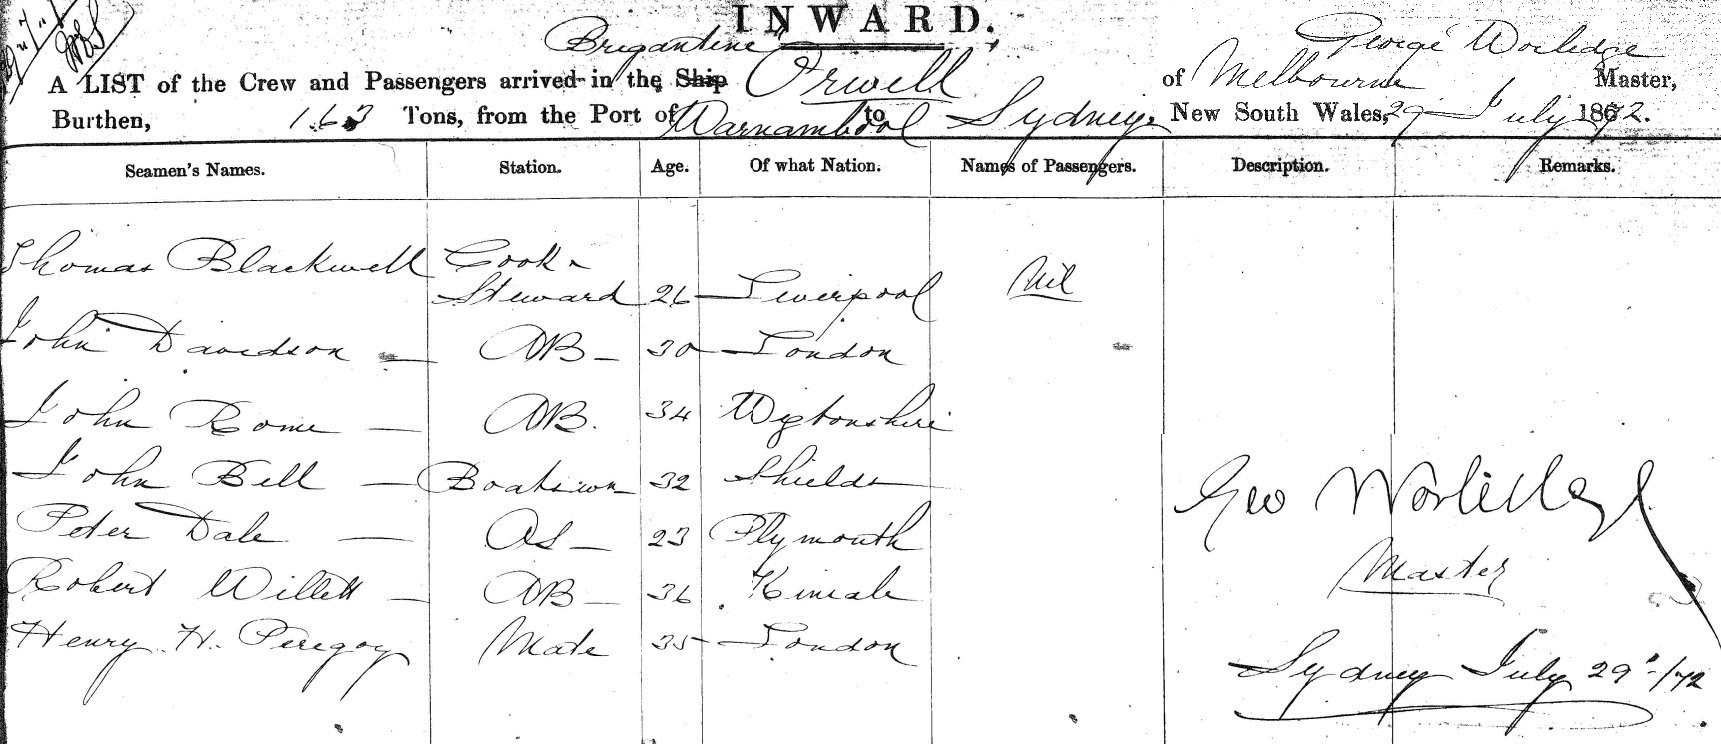 INWARD.
Brigantine George Worledge
A LIST of the Crew and Passengers arrived in the Ship Orwell of Melbourne Master,
Burthen, 163 Tons, from the Port of Warnambool to Sydney New South Wales, 29 July 1872.
Seamen's Names. Station. Age. Of what Nation. Names of Passengers. Description. Remarks.
Thomas Blackwell Cook &
Steward 26 Liverpool Nil
John Davidson AB 30 London
John Rome AB. 34 Wigtonshire
John Bell Boatswn 32 Shields
Geo Worledge
Peter Dale OS 23 Plymouth
Master
Robert Willett AB 36 Kinsale
Henry H. Peregoy Mate 35 London
Sydney July 29 /72